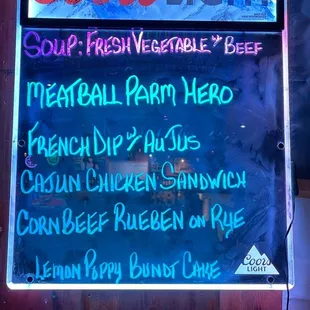 Coors LIGHT
SOUP: FRESH VEGETABLE w/ BEEF
MEATBALL PARM HERO
FRENCH DIP w/ AU JUS
CAJUN CHICKEN SANDWICH
CORN BEEF RUEBEN ON RYE
LEMON POPPY BUNDT CAKE
Coors
LIGHT